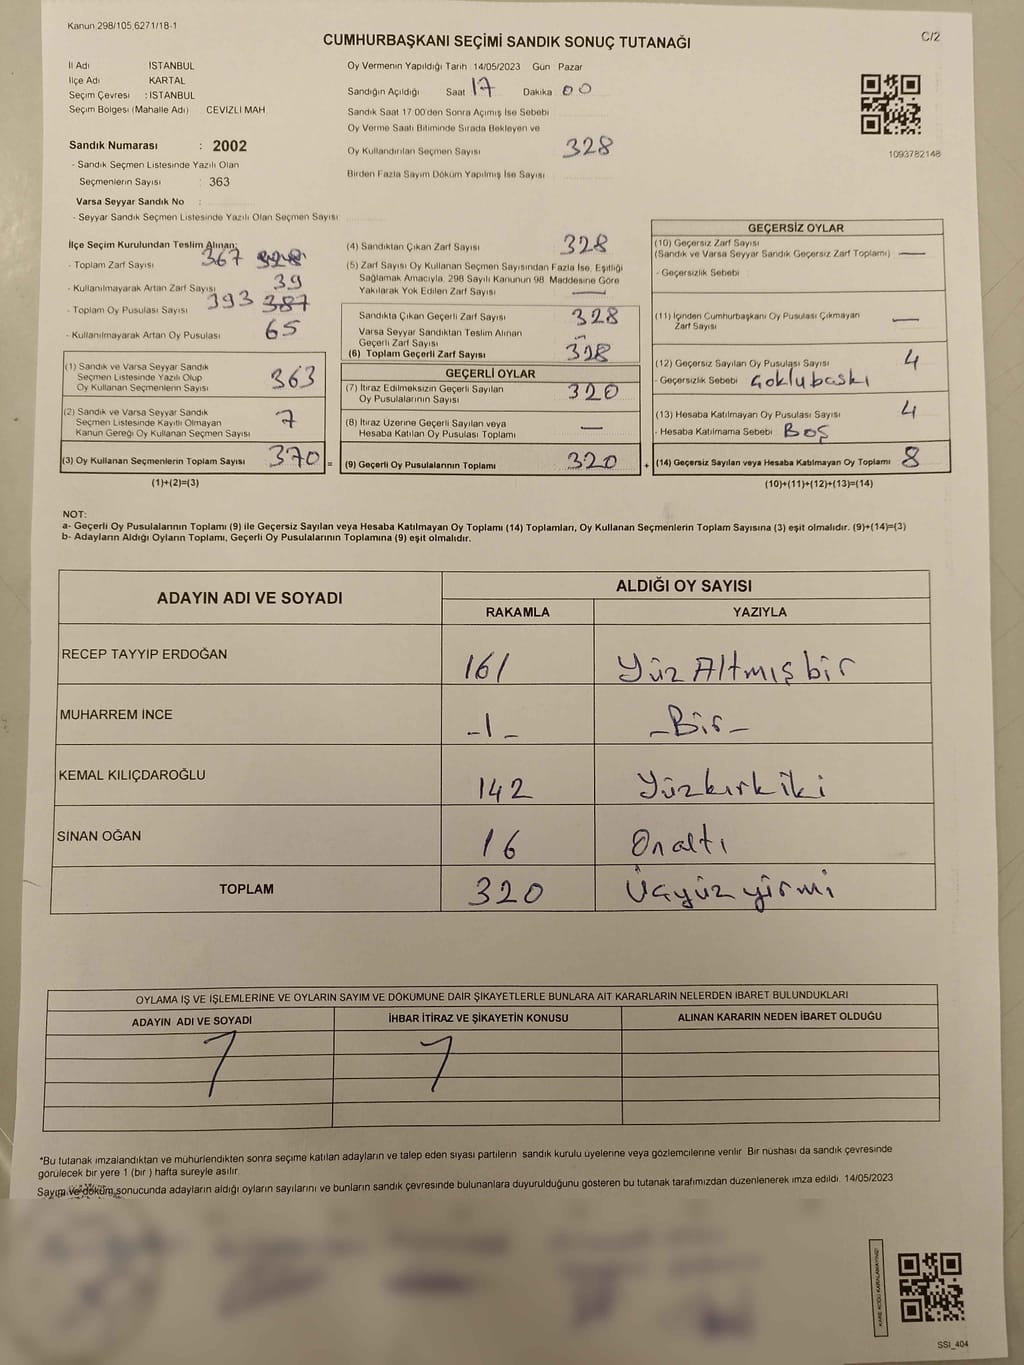 Kanun 298/105,6271/18-1
C/2
CUMHURBAŞKANI SEÇİMİ SANDIK SONUÇ TUTANAĞI
İl Adı İSTANBUL
İlçe Adı KARTAL
Seçim Çevresi : İSTANBUL
Seçim Bölgesi (Mahalle Adı) CEVİZLİ MAH.
Oy Vermenin Yapıldığı Tarih 14/05/2023 Gün Pazar
Sandığın Açıldığı Saat 17 Dakika 00
Sandık Saat 17.00'den Sonra Açılmış İse Sebebi
Oy Verme Saati Bitiminde Sırada Bekleyen ve
Oy Kullandırılan Seçmen Sayısı 328
Birden Fazla Sayım Döküm Yapılmış İse Sayısı
1093782148
Sandık Numarası : 2002
- Sandık Seçmen Listesinde Yazılı Olan
Seçmenlerin Sayısı : 363
Varsa Seyyar Sandık No :
- Seyyar Sandık Seçmen Listesinde Yazılı Olan Seçmen Sayısı
İlçe Seçim Kurulundan Teslim Alınan:
- Toplam Zarf Sayısı 367 328
- Kullanılmayarak Artan Zarf Sayısı 39
- Toplam Oy Pusulası Sayısı 393 387
- Kullanılmayarak Artan Oy Pusulası 65
(1) Sandık ve Varsa Seyyar Sandık
Seçmen Listesinde Yazılı Olup
Oy Kullanan Seçmenlerin Sayısı 363
(2) Sandık ve Varsa Seyyar Sandık
Seçmen Listesinde Kayıtlı Olmayan
Kanun Gereği Oy Kullanan Seçmen Sayısı 7
(3) Oy Kullanan Seçmenlerin Toplam Sayısı 370 =
(1)+(2)=(3)
(4) Sandıktan Çıkan Zarf Sayısı 328
(5) Zarf Sayısı Oy Kullanan Seçmen Sayısından Fazla İse, Eşitliği
Sağlamak Amacıyla, 298 Sayılı Kanunun 98. Maddesine Göre
Yakılarak Yok Edilen Zarf Sayısı —
Sandıkta Çıkan Geçerli Zarf Sayısı 328
Varsa Seyyar Sandıktan Teslim Alınan
Geçerli Zarf Sayısı –
(6) Toplam Geçerli Zarf Sayısı 328
GEÇERLİ OYLAR
(7) İtiraz Edilmeksizin Geçerli Sayılan
Oy Pusulalarının Sayısı 320
(8) İtiraz Üzerine Geçerli Sayılan veya
Hesaba Katılan Oy Pusulası Toplamı —
(9) Geçerli Oy Pusulalarının Toplamı 320 +
GEÇERSİZ OYLAR
(10) Geçersiz Zarf Sayısı
(Sandık ve Varsa Seyyar Sandık Geçersiz Zarf Toplamı) —
- Geçersizlik Sebebi
(11) İçinden Cumhurbaşkanı Oy Pusulası Çıkmayan
Zarf Sayısı —
(12) Geçersiz Sayılan Oy Pusulası Sayısı 4
- Geçersizlik Sebebi Çoklu baskı
(13) Hesaba Katılmayan Oy Pusulası Sayısı 4
- Hesaba Katılmama Sebebi Boş
(14) Geçersiz Sayılan veya Hesaba Katılmayan Oy Toplamı 8
(10)+(11)+(12)+(13)=(14)
NOT:
a- Geçerli Oy Pusulalarının Toplamı (9) ile Geçersiz Sayılan veya Hesaba Katılmayan Oy Toplamı (14) Toplamları, Oy Kullanan Seçmenlerin Toplam Sayısına (3) eşit olmalıdır. (9)+(14)=(3)
b- Adayların Aldığı Oyların Toplamı, Geçerli Oy Pusulalarının Toplamına (9) eşit olmalıdır.
ADAYIN ADI VE SOYADI
ALDIĞI OY SAYISI
RAKAMLA YAZIYLA
RECEP TAYYİP ERDOĞAN 161 Yüz Altmış bir
MUHARREM İNCE -1- -Bir-
KEMAL KILIÇDAROĞLU 142 Yüzkırkiki
SİNAN OĞAN 16 Onaltı
TOPLAM 320 Üçyüz yirmi
OYLAMA İŞ VE İŞLEMLERİNE VE OYLARIN SAYIM VE DÖKÜMÜNE DAİR ŞİKAYETLERLE BUNLARA AİT KARARLARIN NELERDEN İBARET BULUNDUKLARI
ADAYIN ADI VE SOYADI İHBAR İTİRAZ VE ŞİKAYETİN KONUSU ALINAN KARARIN NEDEN İBARET OLDUĞU
*Bu tutanak imzalandıktan ve mühürlendikten sonra seçime katılan adayların ve talep eden siyasi partilerin sandık kurulu üyelerine veya gözlemcilerine verilir. Bir nüshası da sandık çevresinde
görülecek bir yere 1 (bir) hafta süreyle asılır.
Sayım ve döküm sonucunda adayların aldığı oyların sayılarını ve bunların sandık çevresinde bulunanlara duyurulduğunu gösteren bu tutanak tarafımızdan düzenlenerek imza edildi. 14/05/2023
KARE KODU KARALAMAYINIZ!
SSİ_404